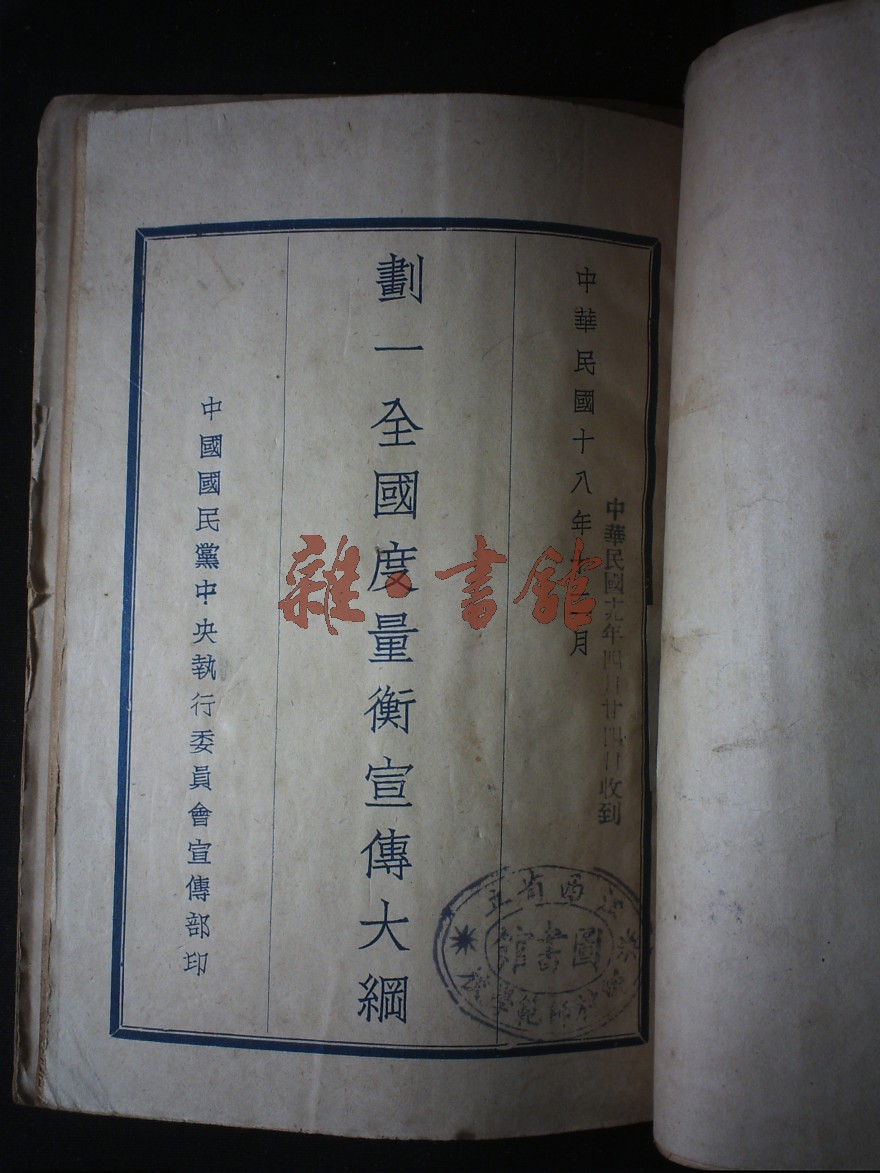 中華民國十九年四月廿四日收到
中華民國十八年十二月
劃一全國度量衡宣傳大綱
中國國民黨中央執行委員會宣傳部印
雜·書館
江西省立
圖書館
師範學校